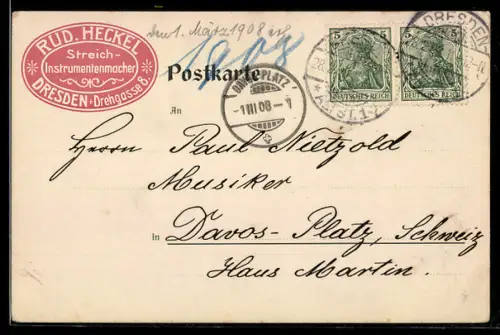 RUD. HECKEL
Streich-
Instrumentenmacher
DRESDEN Drehgasse 8
den 1. März 1908
1908
Postkarte
5 5
DEUTSCHES REICH
5 5
DEUTSCHES REICH
DRESDEN
ALTST. 1
DAVOS-PLATZ
-1 III 08-
An
Herrn Paul Nietzold
Musiker
in Davos-Platz, Schweiz
Haus Martin.